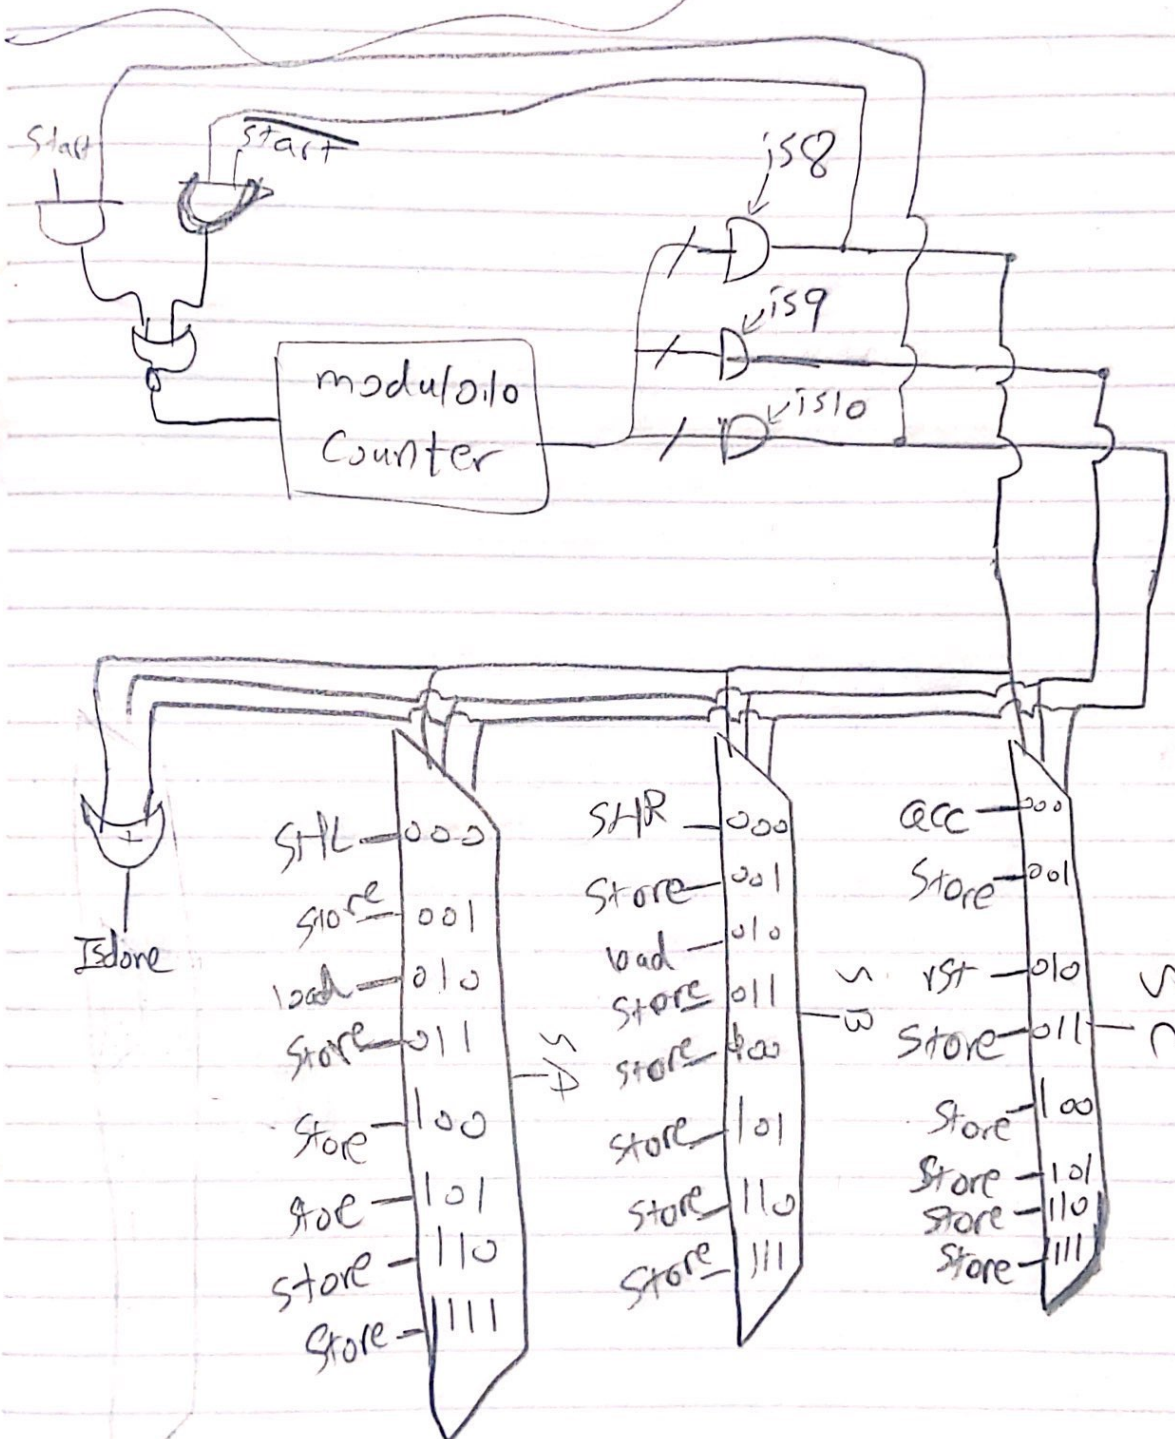 Start
start
is8
is9
is10
modulo10
Counter
Isdone
SHL
000
store
001
load
010
Store
011
Store
100
store
101
store
110
Store
111
S
SHR
000
Store
001
load
010
Store
011
store
100
store
101
store
110
Store
111
S B
acc
000
Store
001
rst
010
Store
011
Store
100
Store
101
store
110
Store
111
S C